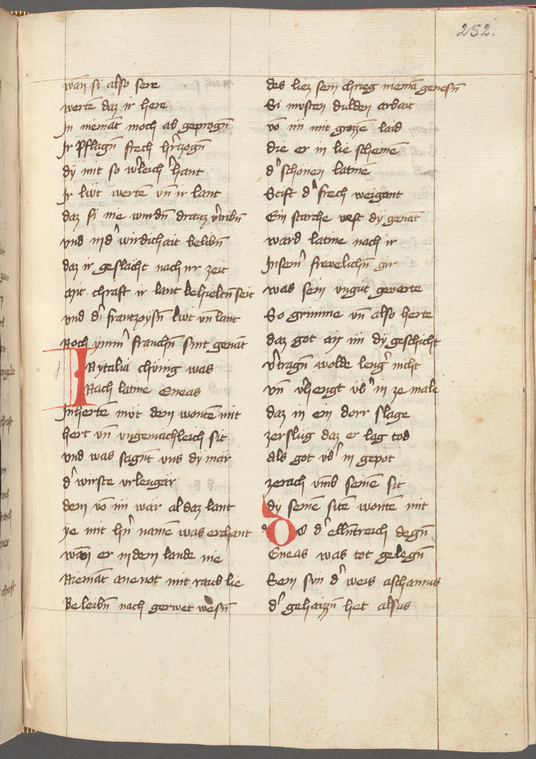 252.
wan si also sere
werte daz ir here
In niemāt moch ab geprogn̄
Ir pflagn̄ frech h'czogn̄
dy mit so w'leich' hant
Ir lwt werten vn̄ ir lant
daz si nie wurdn̄ dracz v'tribn̄
vnd in d' wirdichait belibn̄
daz ir geslācht nach irr zeit
mit chraft ir lant behieltn̄ seit
vnd di frantzoysn̄ lwt vn̄ lant
Noch ymm' franchn̄ sint genāt
In ytalia chūnig was
Nach latine Eneas
In herte mūt dem wonte mit
hert vn̄ vngemachleich sit
vnd was sagnt vns dy mār
d' wirste vrleugar
dem vō im war al daz lant
ye mit sin' name was erchant
wan er in dem lande nie
Niemāt ane not mit raub lie
Beleibn̄ nach gerwet wesn̄
des liez sein chrieg niemā genesn̄
Si mūsten dulden arbait
vō im mit grozze laid
die er in lie scheinē
d' schonen latine
Stift d' frech weigant
Ein starche vest dy genāt
ward latine nach ir
In sein' frevelichn̄ gir
was sein vngut geverte
So grimme vn̄ also herte
daz got an im dy geschicht
v'tragn̄ wolde leng' nicht
vn̄ v'hengt vb' in ze male
daz in ein dorr slage
zerslūg daz er lag tod
als got vb' in gepot
zerach vmb seine sit
dy seinē sitē wonten mit
Do d' elln̄treich degn̄
Eneas was tot gelegn̄
Sein svn d' weis aschanius
d' gehaizzn̄ het alsus